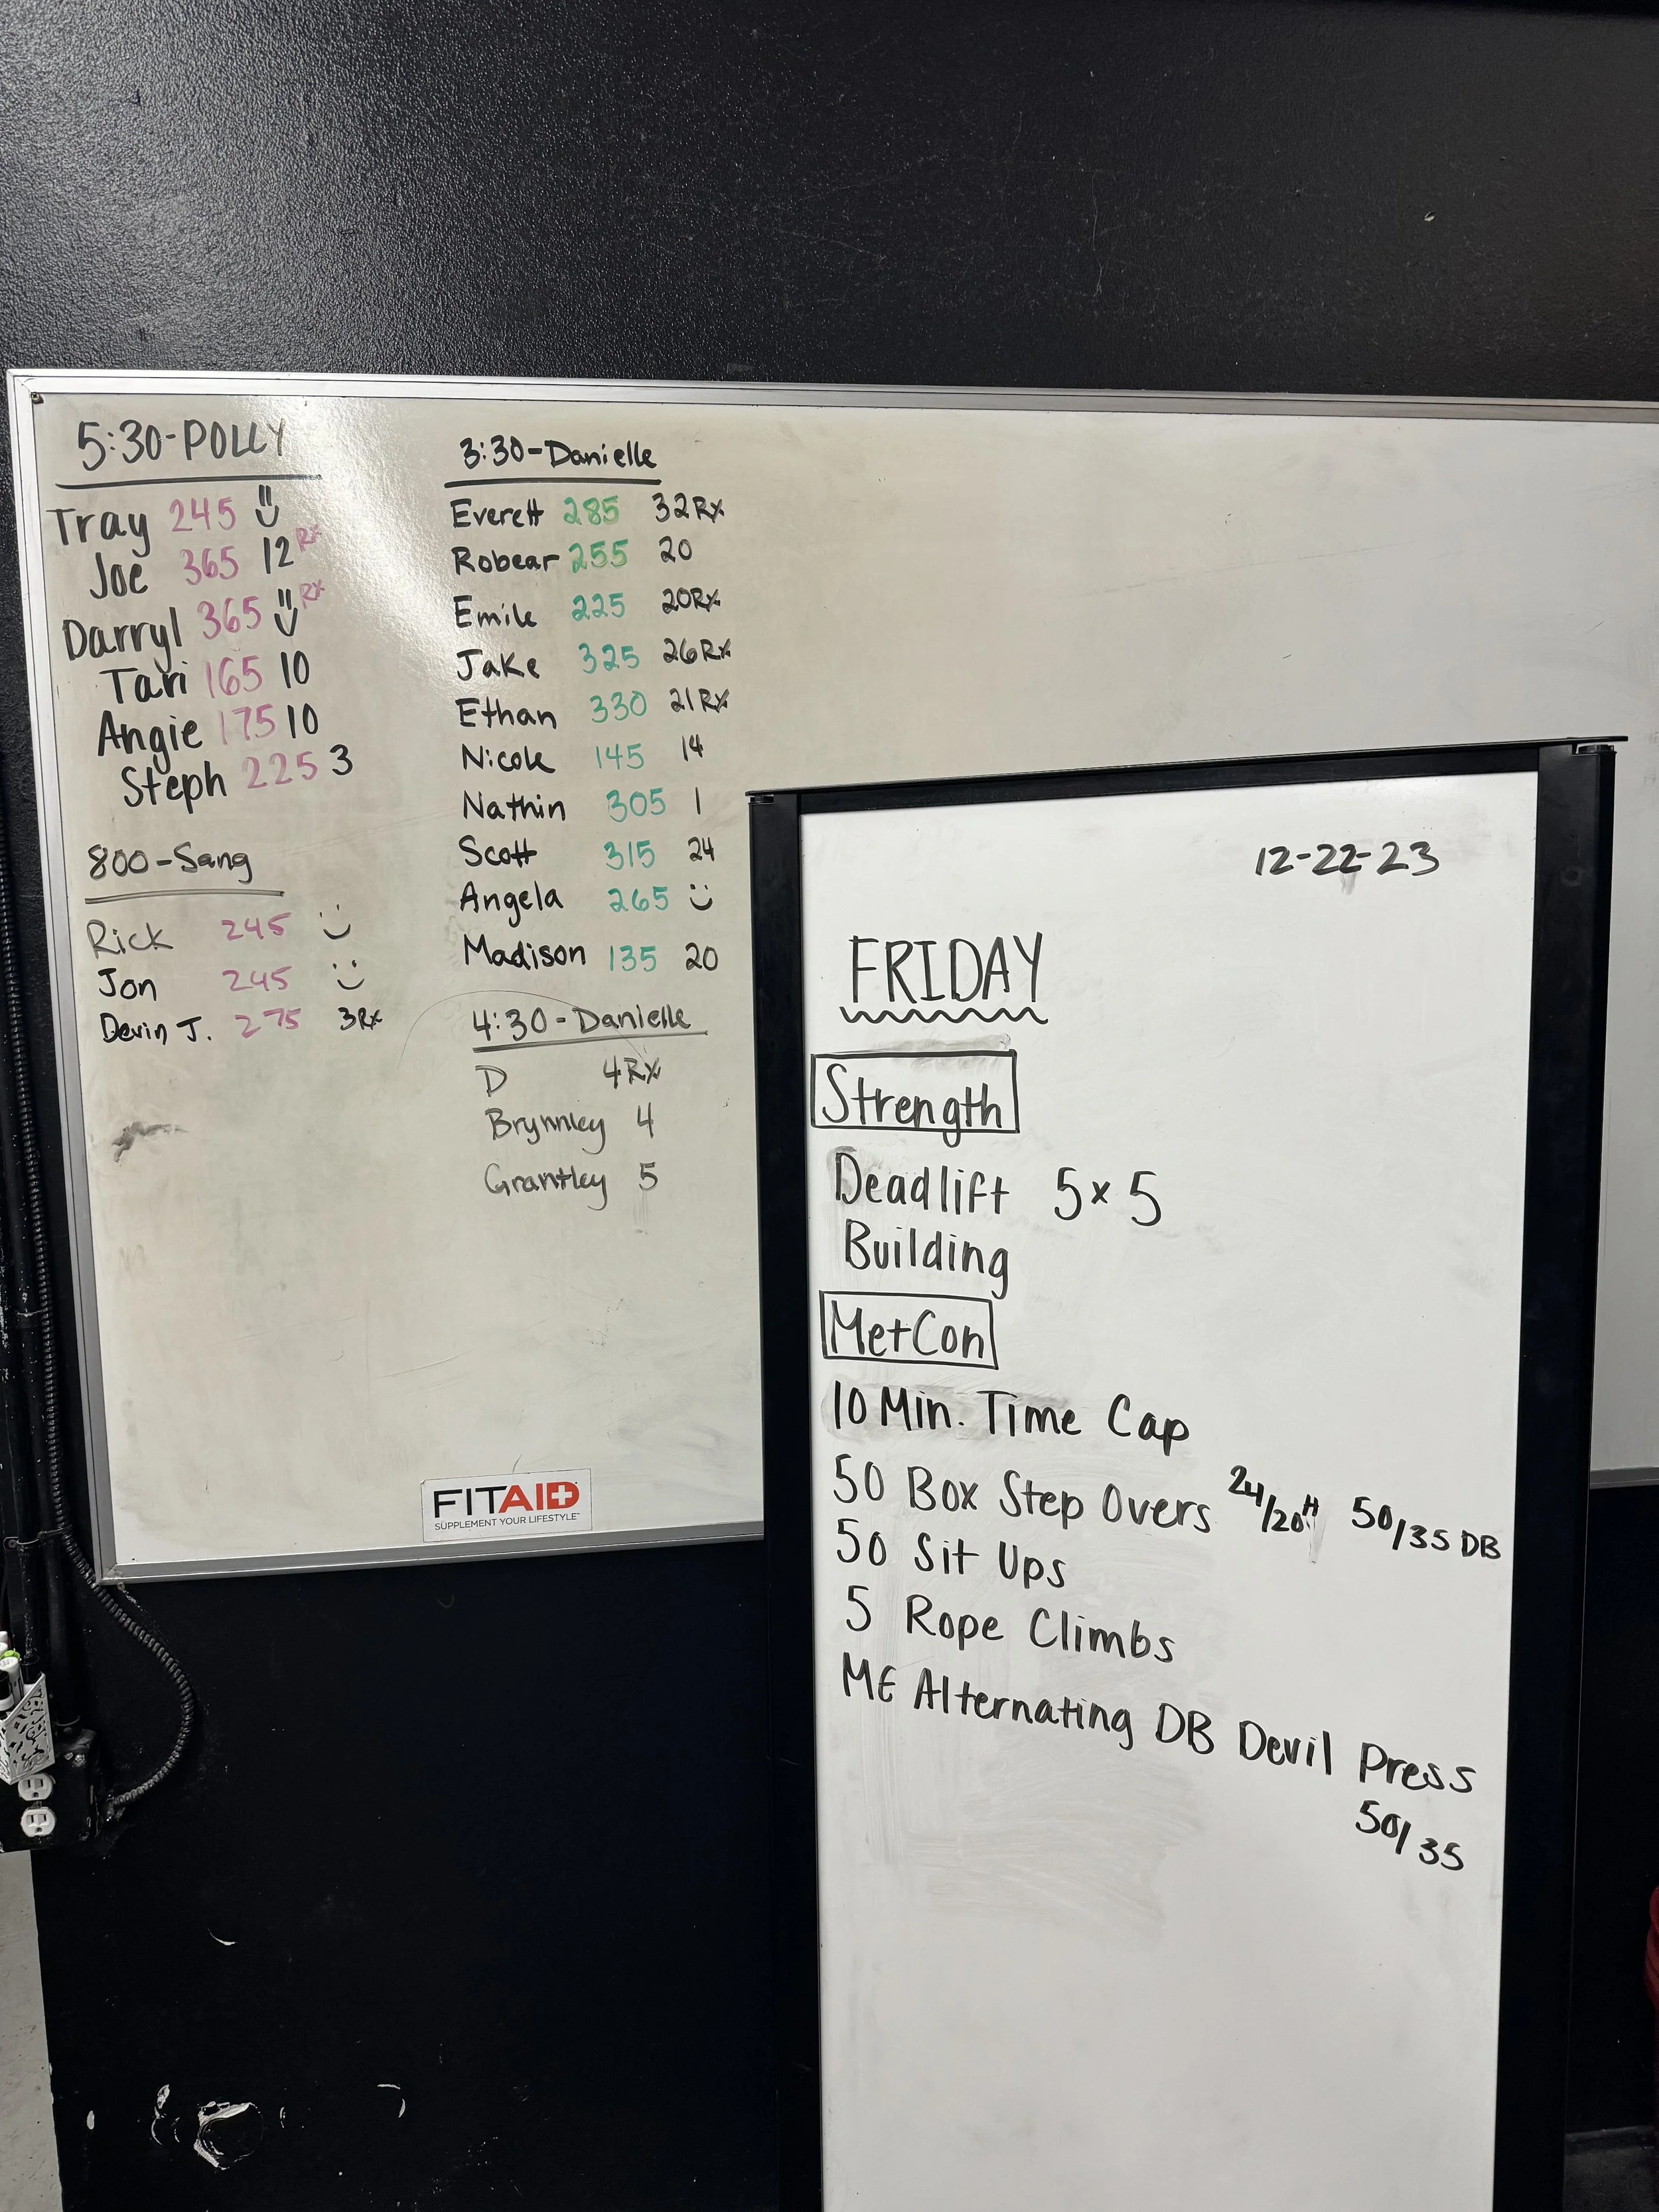 5:30-POLLY
Tray 245
Joe 365 12 Rx
Darryl 365 Rx
Tari 165 10
Angie 175 10
Steph 225 3
800-Sang
Rick 245
Jon 245
Devin J. 275 3Rx
3:30-Danielle
Everett 285 32Rx
Robear 255 20
Emile 225 20Rx
Jake 325 26Rx
Ethan 330 21Rx
Nicole 145 14
Nathin 305 1
Scott 315 24
Angela 265
Madison 135 20
4:30-Danielle
D 4Rx
Brynnley 4
Grantley 5
FITAID
SUPPLEMENT YOUR LIFESTYLE™
12-22-23
FRIDAY
Strength
Deadlift 5x5
Building
MetCon
10 Min. Time Cap
50 Box Step Overs 24/20" 50/35 DB
50 Sit Ups
5 Rope Climbs
ME Alternating DB Devil Press
50/35